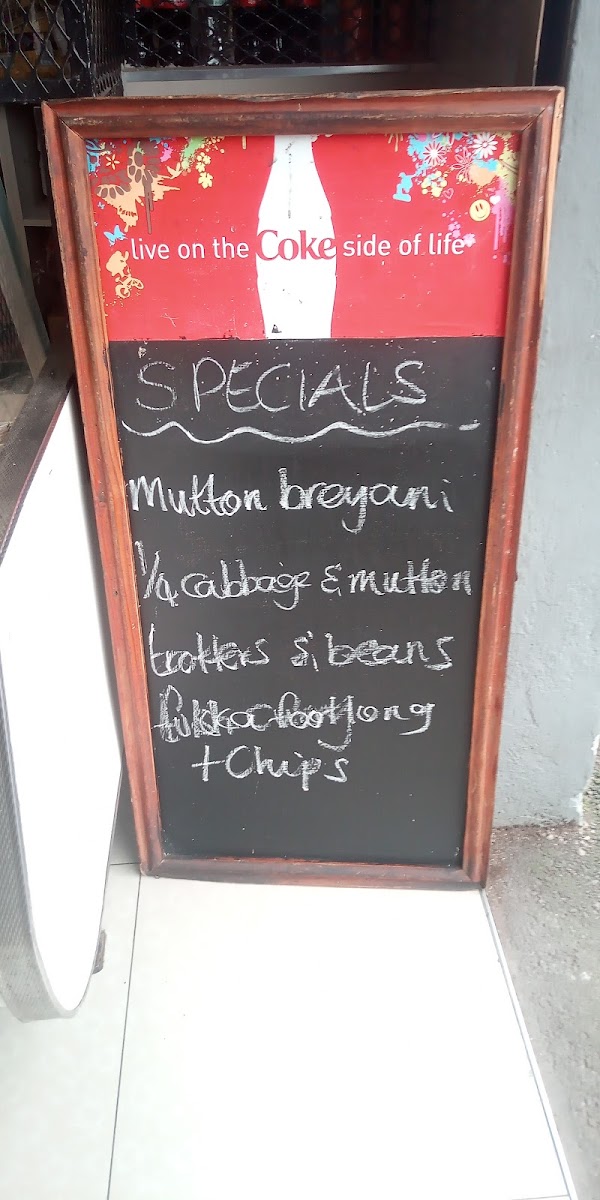 live on the Coke side of life
SPECIALS
Mutton breyani
1/4 cabbage & mutton
trotters & beans
footlong
+ Chips